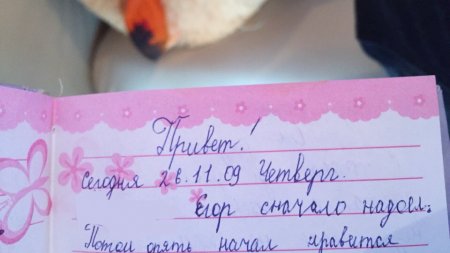 Привет!
сегодня 26.11.09 Четверг.
Егор сначало надоел.
Потои опять начал нравится